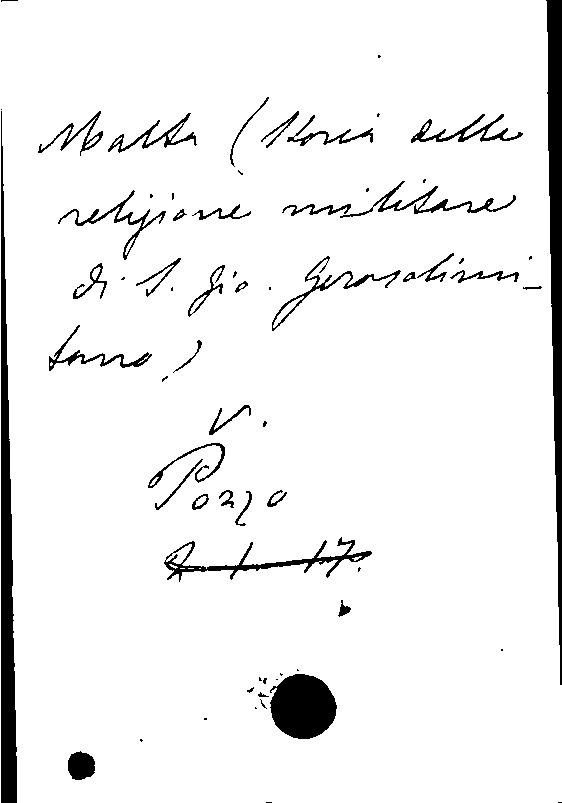 Malta (Storia della
religione militare
di S. Gio. Gerosolimi-
tano)
V.
Pozzo
2. 1. 17.